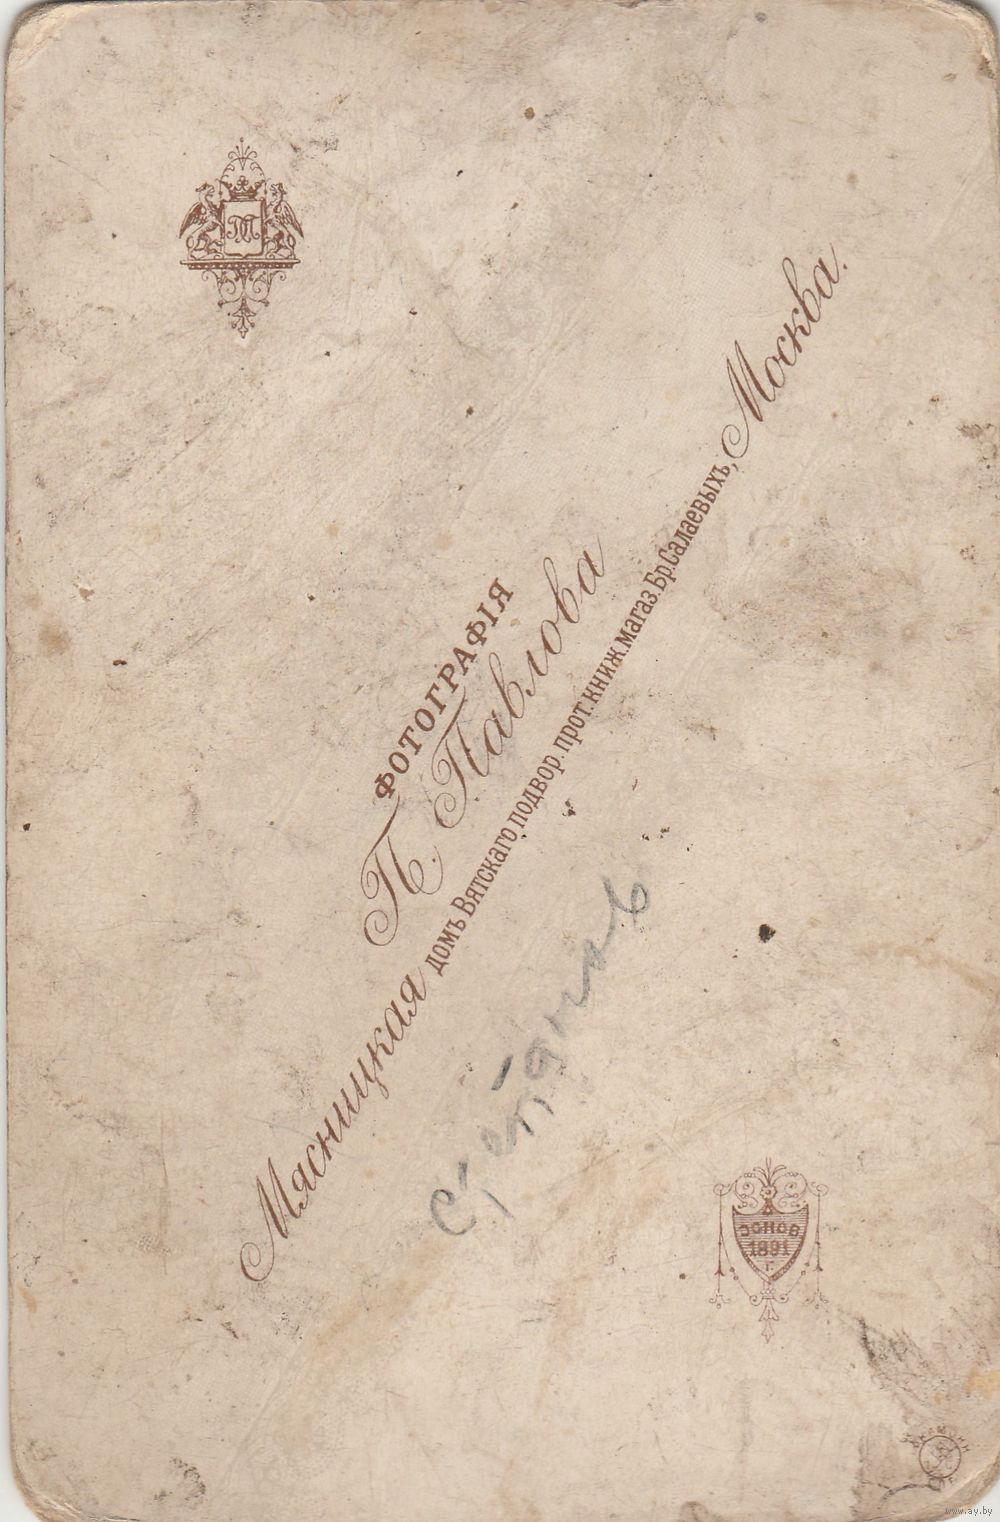 ФОТОГРАФІЯ
П. Павлова
Мясницкая домъ Вятскаго подвор. прот. книж. магаз. Бр. Салаевыхъ, Москва.
ОСНОВ
1891
Г.
www.ay.by